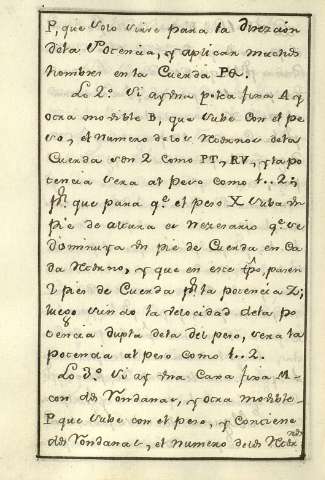 P, que solo sirve para la direzcion
dela Potencia, y aplican muchos
hombres en la Cuerda PQ.
Lo 2.º Si ay una polea fixa A y
otra mobible B, que sube con el pe
so, el numero delos Retornos dela
Cuerda son 2 como PT, RV, y la po
tencia sera al peso como 1..2;
que para q.e el peso X suba un
pie de altura es nezesario q.e se
disminuya un pie de Cuerda en Ca
da Retorno, y que en este tpō, pasen
2 pies de Cuerda la potencia Z;
luego siendo la velocidad dela po
tencia dupla dela del peso, sera la
potencia al peso como 1..2.
Lo 3.º Si ay una Caxa fixa M
con dos Rondanas, y otra mobible
P que sube con el peso, y Contiene
dos Rondanas, el numero delos Retor
nos